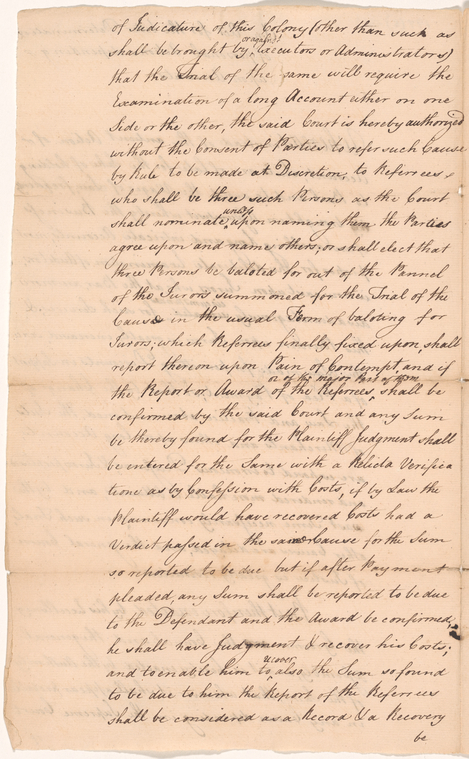 of Judicature of this Colony (other than such as
or against
shall be brought by, Executors or Administrators)
that the Trial of the same will require the
Examination of a long Account either on one
Side or the other, the said Court is hereby authorized
without the Consent of Parties to refer such Cause
by Rule to be made at Discretion, to Referrees,
who shall be three such Persons as the Court
unless
shall nominate, upon naming them the Parties
agree upon and name others; or shall elect that
three Persons be baloted for out of the Pannel
of the Jurors summoned for the Trial of the
Cause in the usual Form of baloting for
Jurors; which Referrees finally fixed upon, shall
report thereon upon Pain of Contempt, and if
or of the major Part of them
the Report or Award of the Referrees, shall be
confirmed by the said Court and any Sum
be thereby found for the Plaintiff Judgment shall
be entered for the Same with a Relicta Verifica
tione as by Confession with Costs, if by Law the
Plaintiff would have recovered Costs had a
Verdict passed in the same Cause for the Sum
so reported to be due but if after Payment
pleaded, any Sum shall be reported to be due
to the Defendant and the Award be confirmed,
he shall have Judgment & recover his Costs;
recover
and to enable him to, also the Sum so found
to be due to him the Report of the Referrees
shall be considered as a Record & a Recovery
be